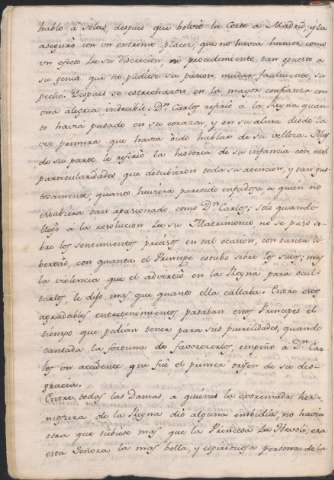 habló a solas, despues que bolvió la Corte a Madrid, y la
aseguró con un extremo placer, que no havia havido como
un efecto de su discrecion, un procedimiento tan opuesto a
su genio que no pudiese su pasion mudar facilmente su
pecho. Despues se estrecharon en la mayor confianza con
una alegria indecible. Dn. Carlos refirió a la Reyna quan-
to havia pasado en su corazon, y en su alma desde la
vez primera que havia oido hablar de su velleza. Ella
de su parte le refirió la historia de su infancia con mil
particularidades que detubieron toda su atencion, y tan gus-
tosamente, quanto huviera parecido enfadosa a quien no
estubiera tan apasionado como Dn. Carlos; solo quando
llegó a la resolucion de su Matrimonio no se paró so-
bre los sentimientos precisos en tal ocasion, con tanta li-
bertad, con quanta el Principe estubo sobre los suyos; mas
la violencia que el advertió en la Reyna para ocul-
tarlos, le dijo mas que quanto ella callaba. Entre estos
agradables entretenimientos pasaban estos Principes el
tiempo que podian tener para sus puerilidades, quando
cansada la fortuna de favorecerlos, empeñó a Dn. Car-
los en un accidente que fue el primer origen de su des-
gracia.
Entre todas las Damas a quienes la extremada her-
mosura de la Reyna dió alguna embidia, no havia
otra que tubiese mas que la Princesa de Hevoli, era
esta Señora la mas bella, y espirituosa persona de la